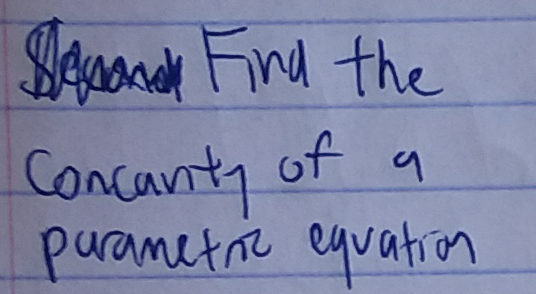 Find the
Concavity of a
parametric equation